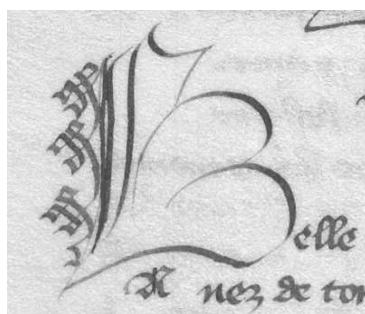 Belle
A nez de tor